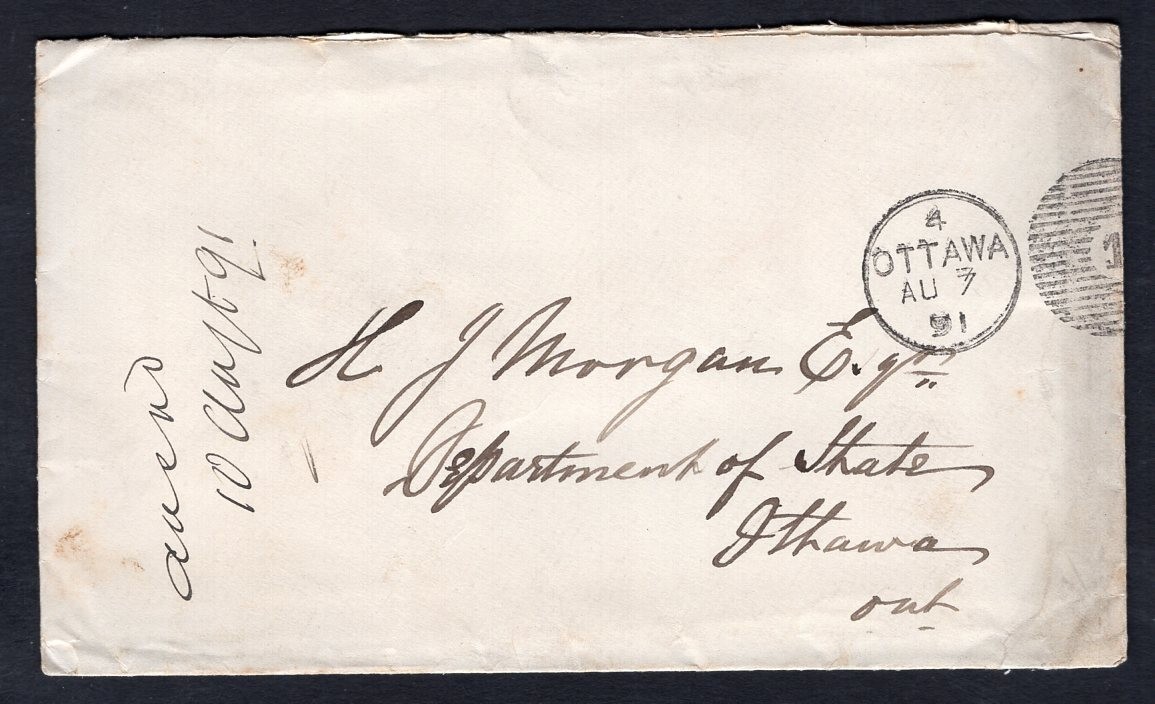 4
OTTAWA
AU 7
91
1
H J Morgan Esqr
Department of State
Ottawa
Ont
ansd
10 Augt 91